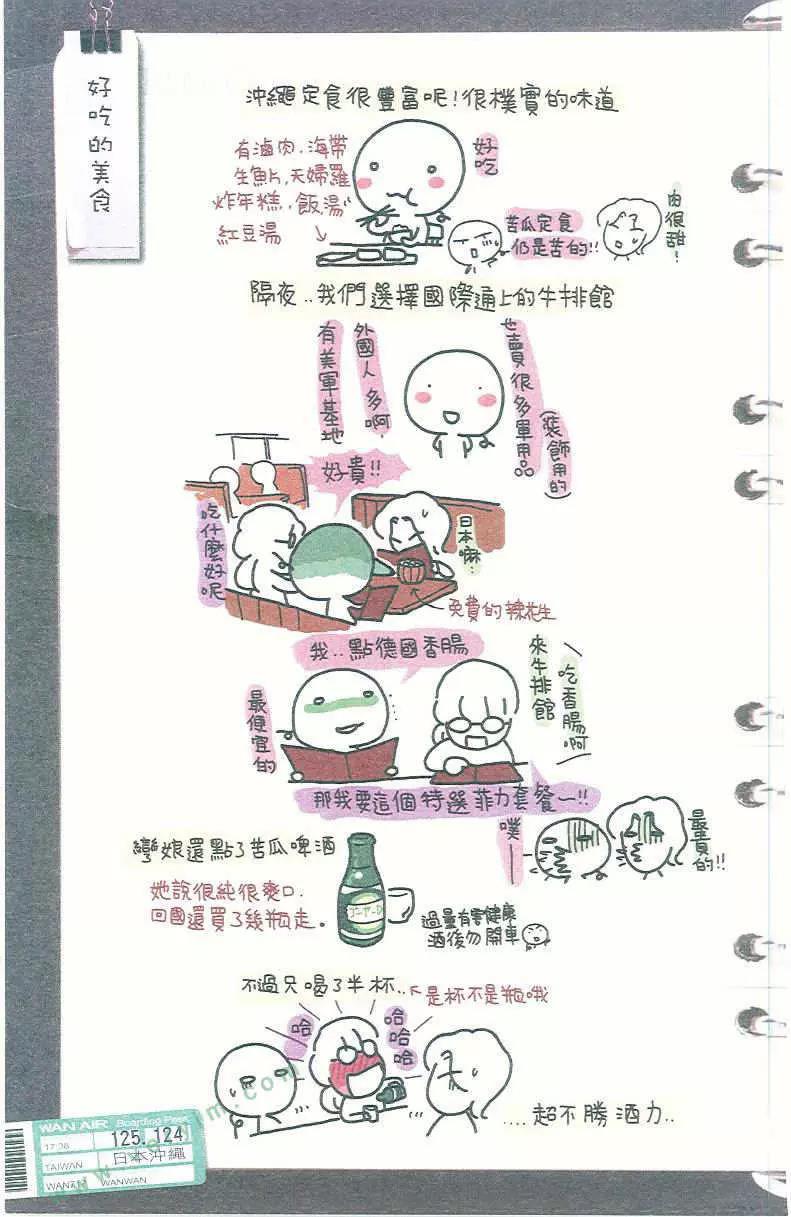 好吃的美食
沖繩定食很豐富呢!很樸實的味道
有滷肉.海帶
生魚片.天婦羅
炸年糕..飯.湯
紅豆湯
好吃
苦瓜定食
仍是苦的!!
肉很甜!
隔夜..我們選擇國際通上的牛排館
有美軍基地
外國人多啊,
也賣很多軍用品
(裝飾用的)
好貴!!
吃什麼好呢
日本嘛..
免費的辣花生
我..點德國香腸
最便宜的
來牛排館
吃香腸啊
那我要這個特選菲力套餐~!!
噗
最貴的!!
彎娘還點了苦瓜啤酒
她說很純很爽口.
回國還買了幾瓶走。
過量有害健康
酒後勿開車
不過只喝了半杯..
是杯不是瓶哦
哈
哈哈哈
....超不勝酒力..
WAN AIR Boarding Pass
17:38
125.124
TAIWAN
日本沖繩
WANAN WANWAN